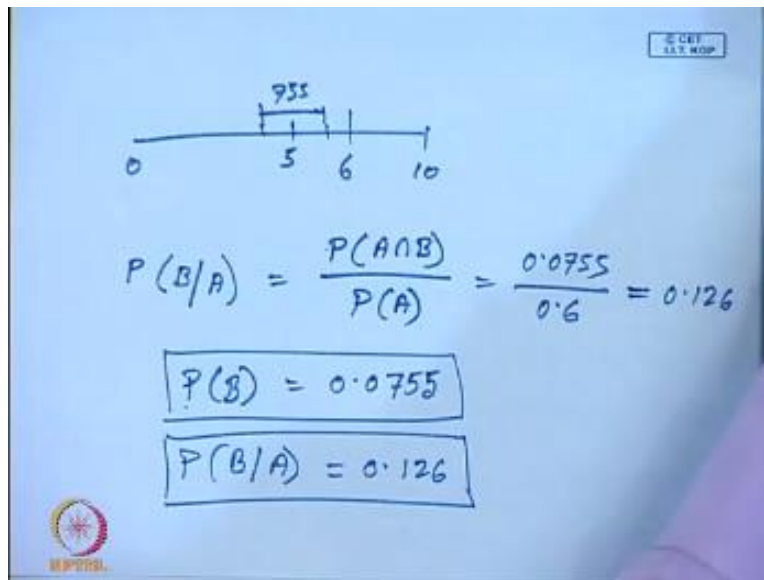 © CET
I.I.T. KGP
755
0 5 6 10
P(B/A) = P(A∩B) / P(A) = 0.0755 / 0.6 = 0.126
P(B) = 0.0755
P(B/A) = 0.126
NPTEL